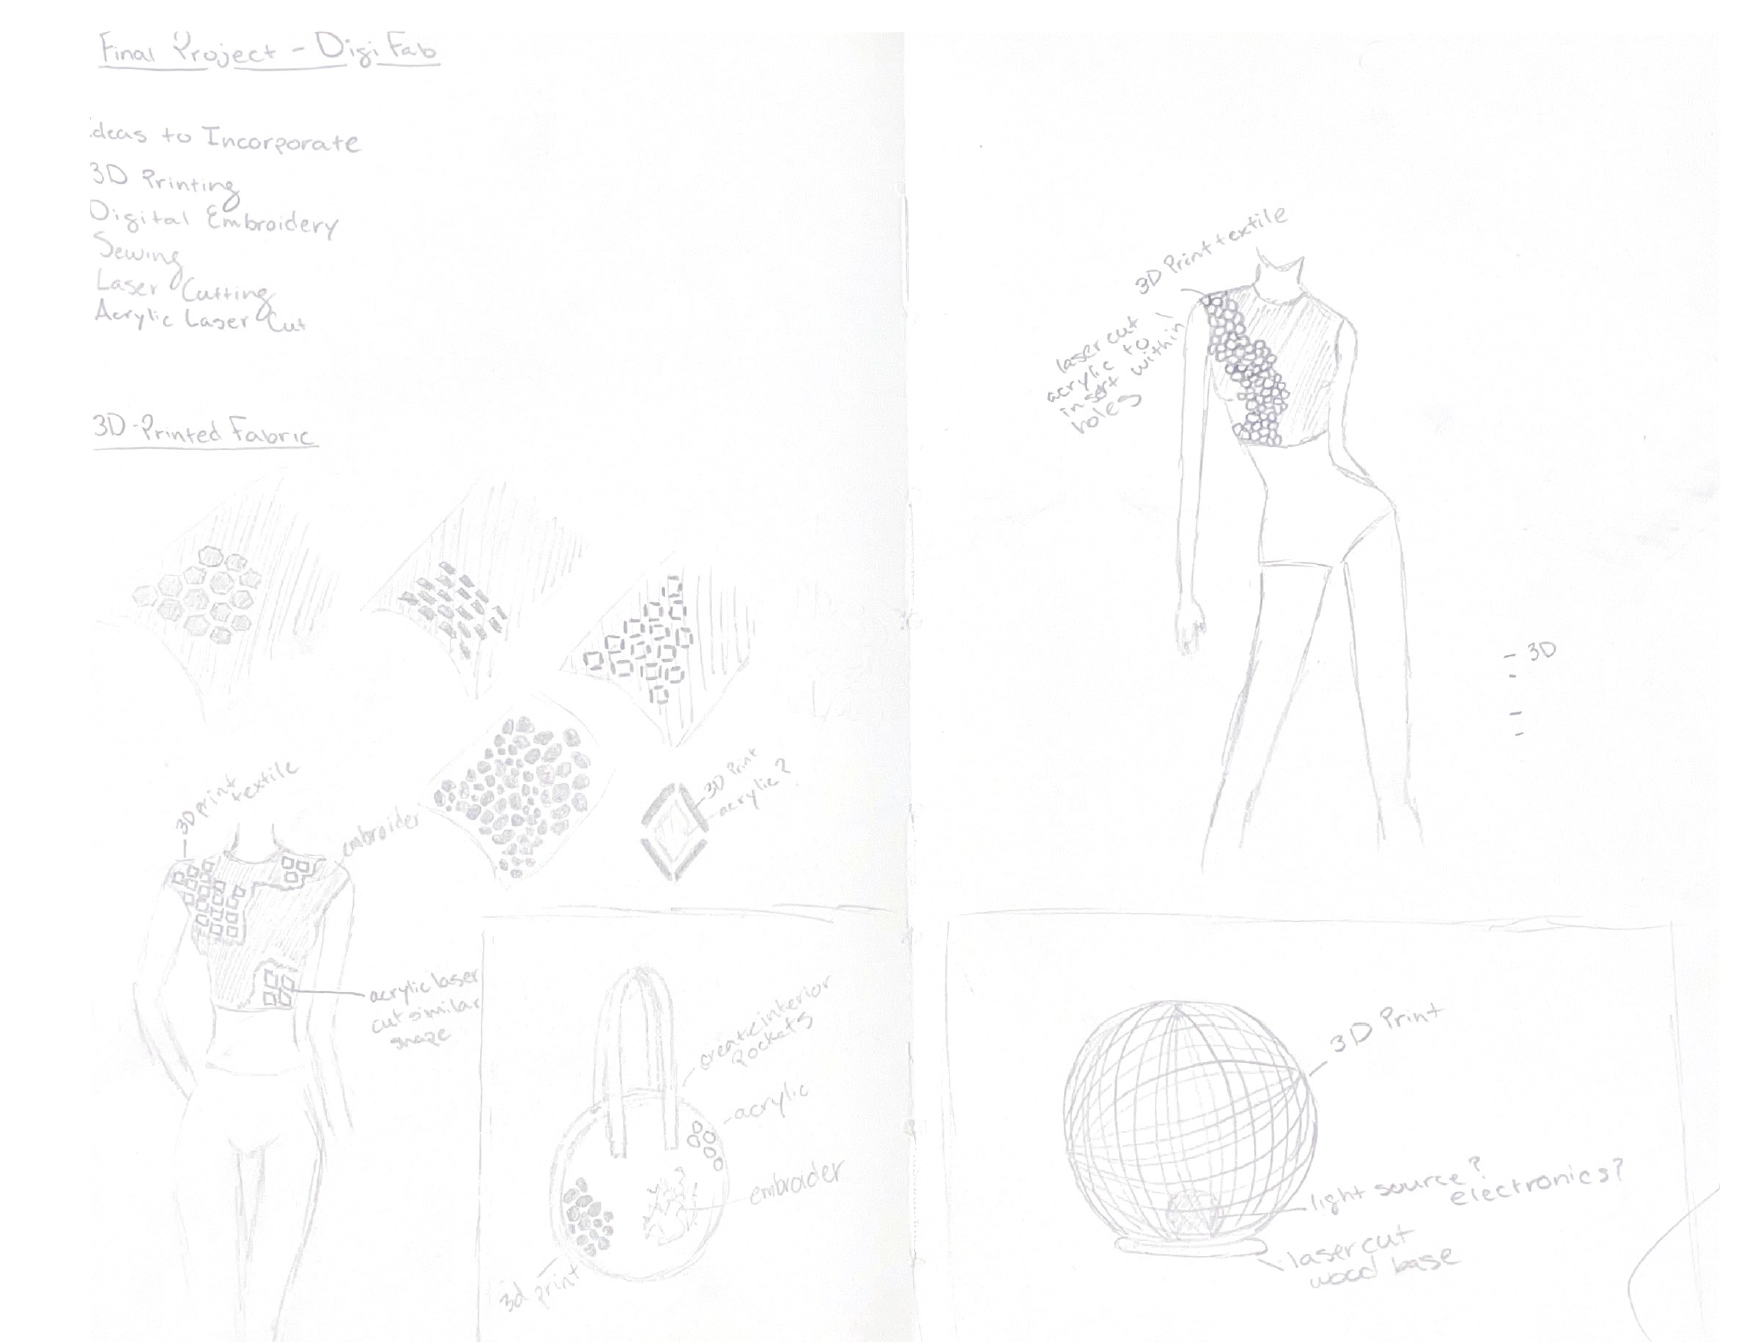 Final Project - DigiFab
Ideas to Incorporate
3D Printing
Digital Embroidery
Sewing
Laser Cutting
Acrylic Laser Cut
3D-Printed Fabric
3D Print
acrylic?
3D print
textile
embroider
acrylic laser
cut similar
shape
create interior
pockets
acrylic
embroider
3d print
3D Print textile
laser cut
acrylic to
insert within
holes
- 3D
-
-
-
3D Print
light source?
electronics?
laser cut
wood base